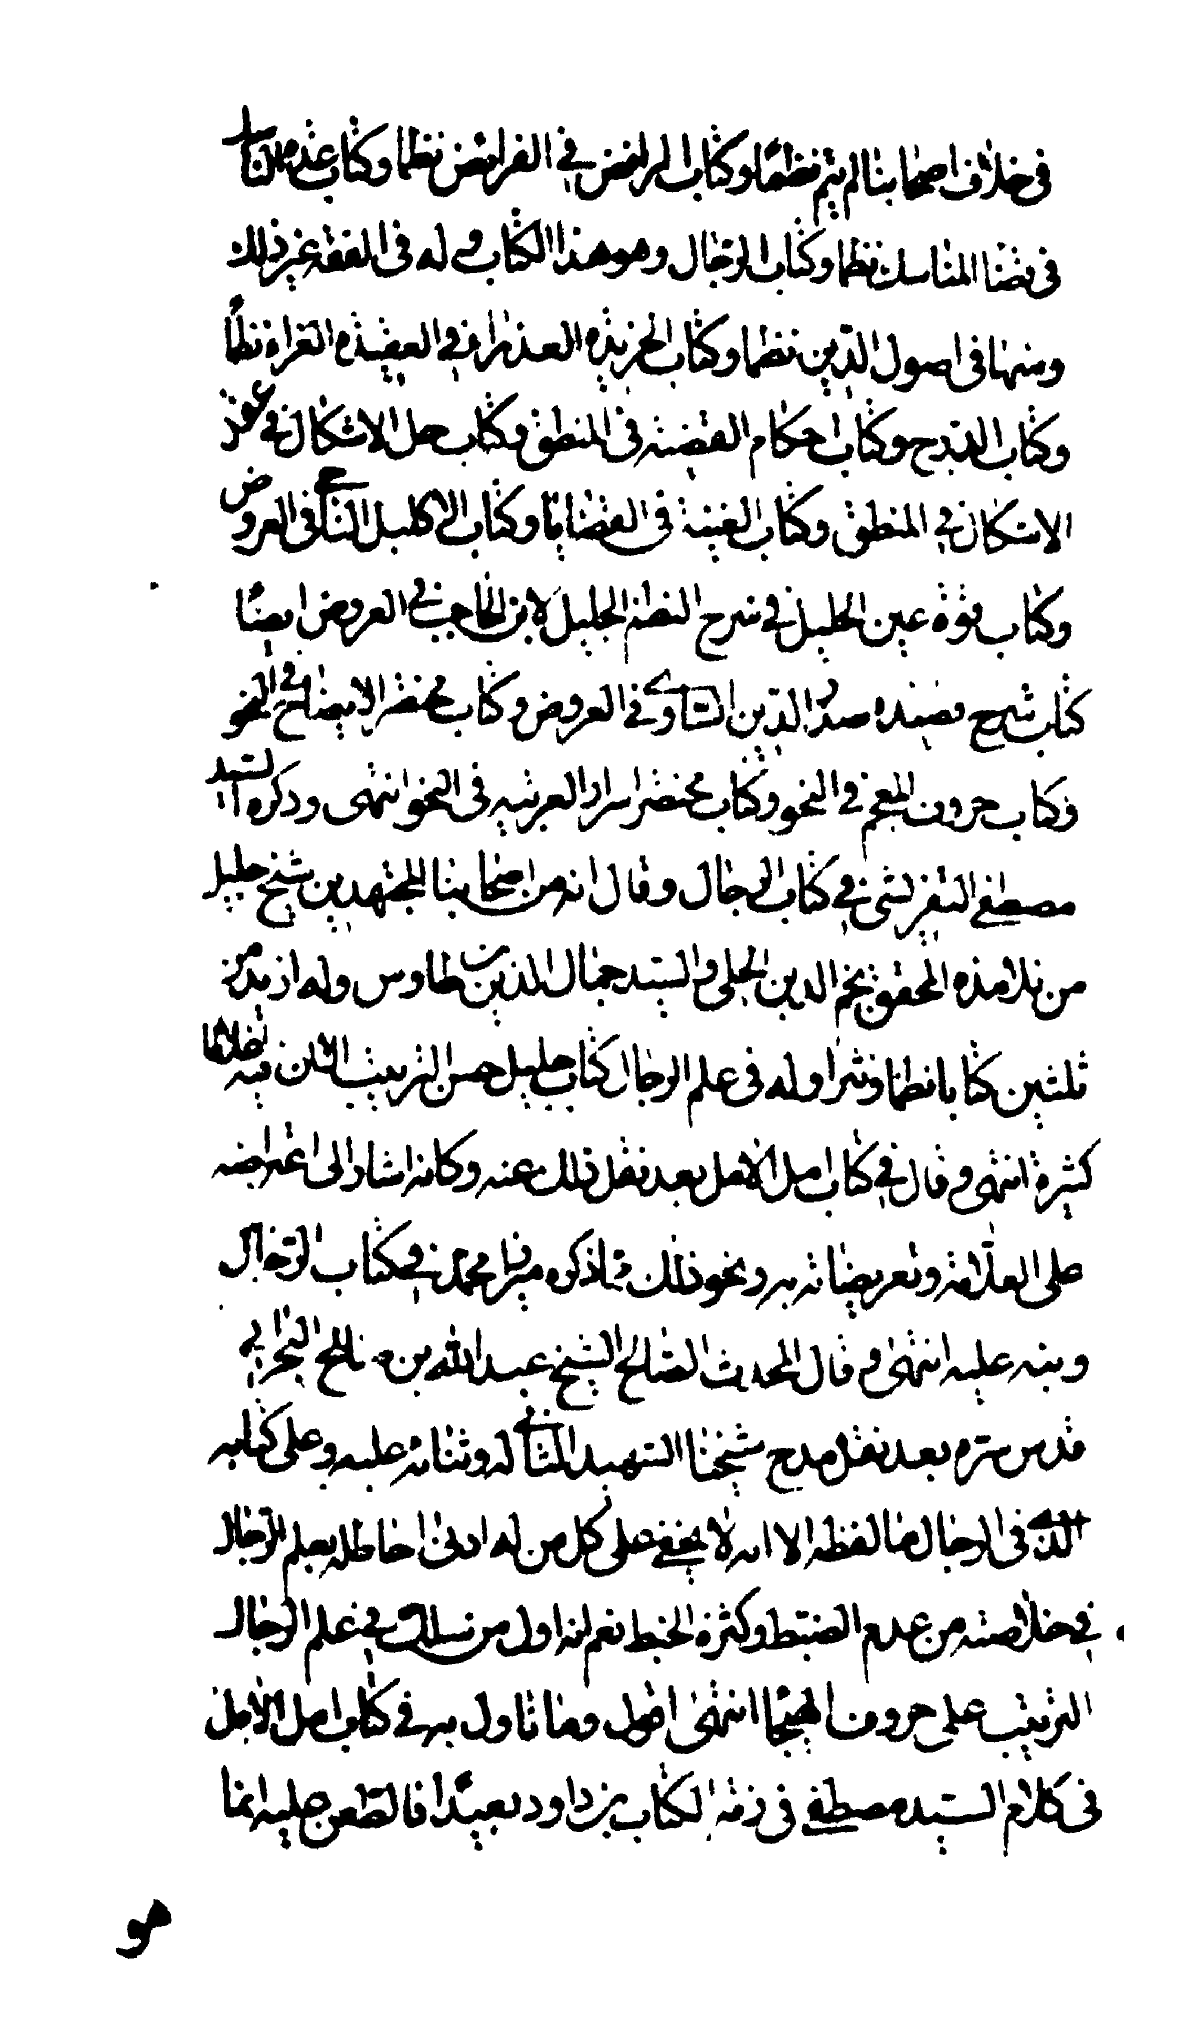 في خلاف اصحابنا لم يتم نظما وكتاب الرايض في الفرايض نظما وكتاب عدة الناسك
في قضاء المناسك نظما وكتاب الرجال وهو هذا الكتاب وله في الفقه غير ذلك
ومنها في اصول الدين نظما وكتاب الخريدة العذراء في العقيدة الغراء نظمًا
وكتاب الدرج وكتاب احكام القضية في المنطق وكتاب حل الاشكال في عقد
الاشكال في المنطق وكتاب الغنية في القضايا وكتاب الاكليل التاجي في العروض
وكتاب قرة عين الخليل في شرح النظم الجليل لابن الحاجب في العروض ايضًا
كتاب شرح قصيدة صدر الدين الساوي في العروض وكتاب مختصر الايضاح في النحو
وكتاب حروف المعجم في النحو وكتاب مختصر اسرار العربية في النحو انتهى وذكره السيد
مصطفى التفرشي في كتاب الرجال وقال انه من اصحابنا المجتهدين شيخ جليل
من تلامذه المحقق نجم الدين الحلي والسيد جمال الدين بن طاوس وله ازيد من
ثلثين كتابا نظما ونثرا وله في علم الرجال كتاب جليل حسن الترتيب الا ان فيه اغلاطا
كثيرة انتهى وقال في كتاب امل الامل بعد نقل ذلك عنه وكانه اشار الى اعتراضه
على العلامة وتعريضاته به ونحو ذلك مما ذكره ميرزا محمد في كتاب الرجال
ونبه عليه انتهى وقال المحدث الصالح الشيخ عبد الله بن صالح البحراني
قدس سره بعد نقل مدح شيخنا الشهيد الثاني له وثنائه عليه وعلى كتابه
الذي في الرجال ما لفظه الا انه لا يخفى على كل من له ادنى احاطه بعلم الرجال
في خلاصته من عدم الضبط وكثرة الخبط نعم انه اول من سلك في علم الرجال
الترتيب على حروف الهجا انتهى اقول وما تاول به في كتاب امل الامل
في كلام السيد مصطفى في ذمه الكتاب بن داود بعيدا فالطعن عليه انما
هو